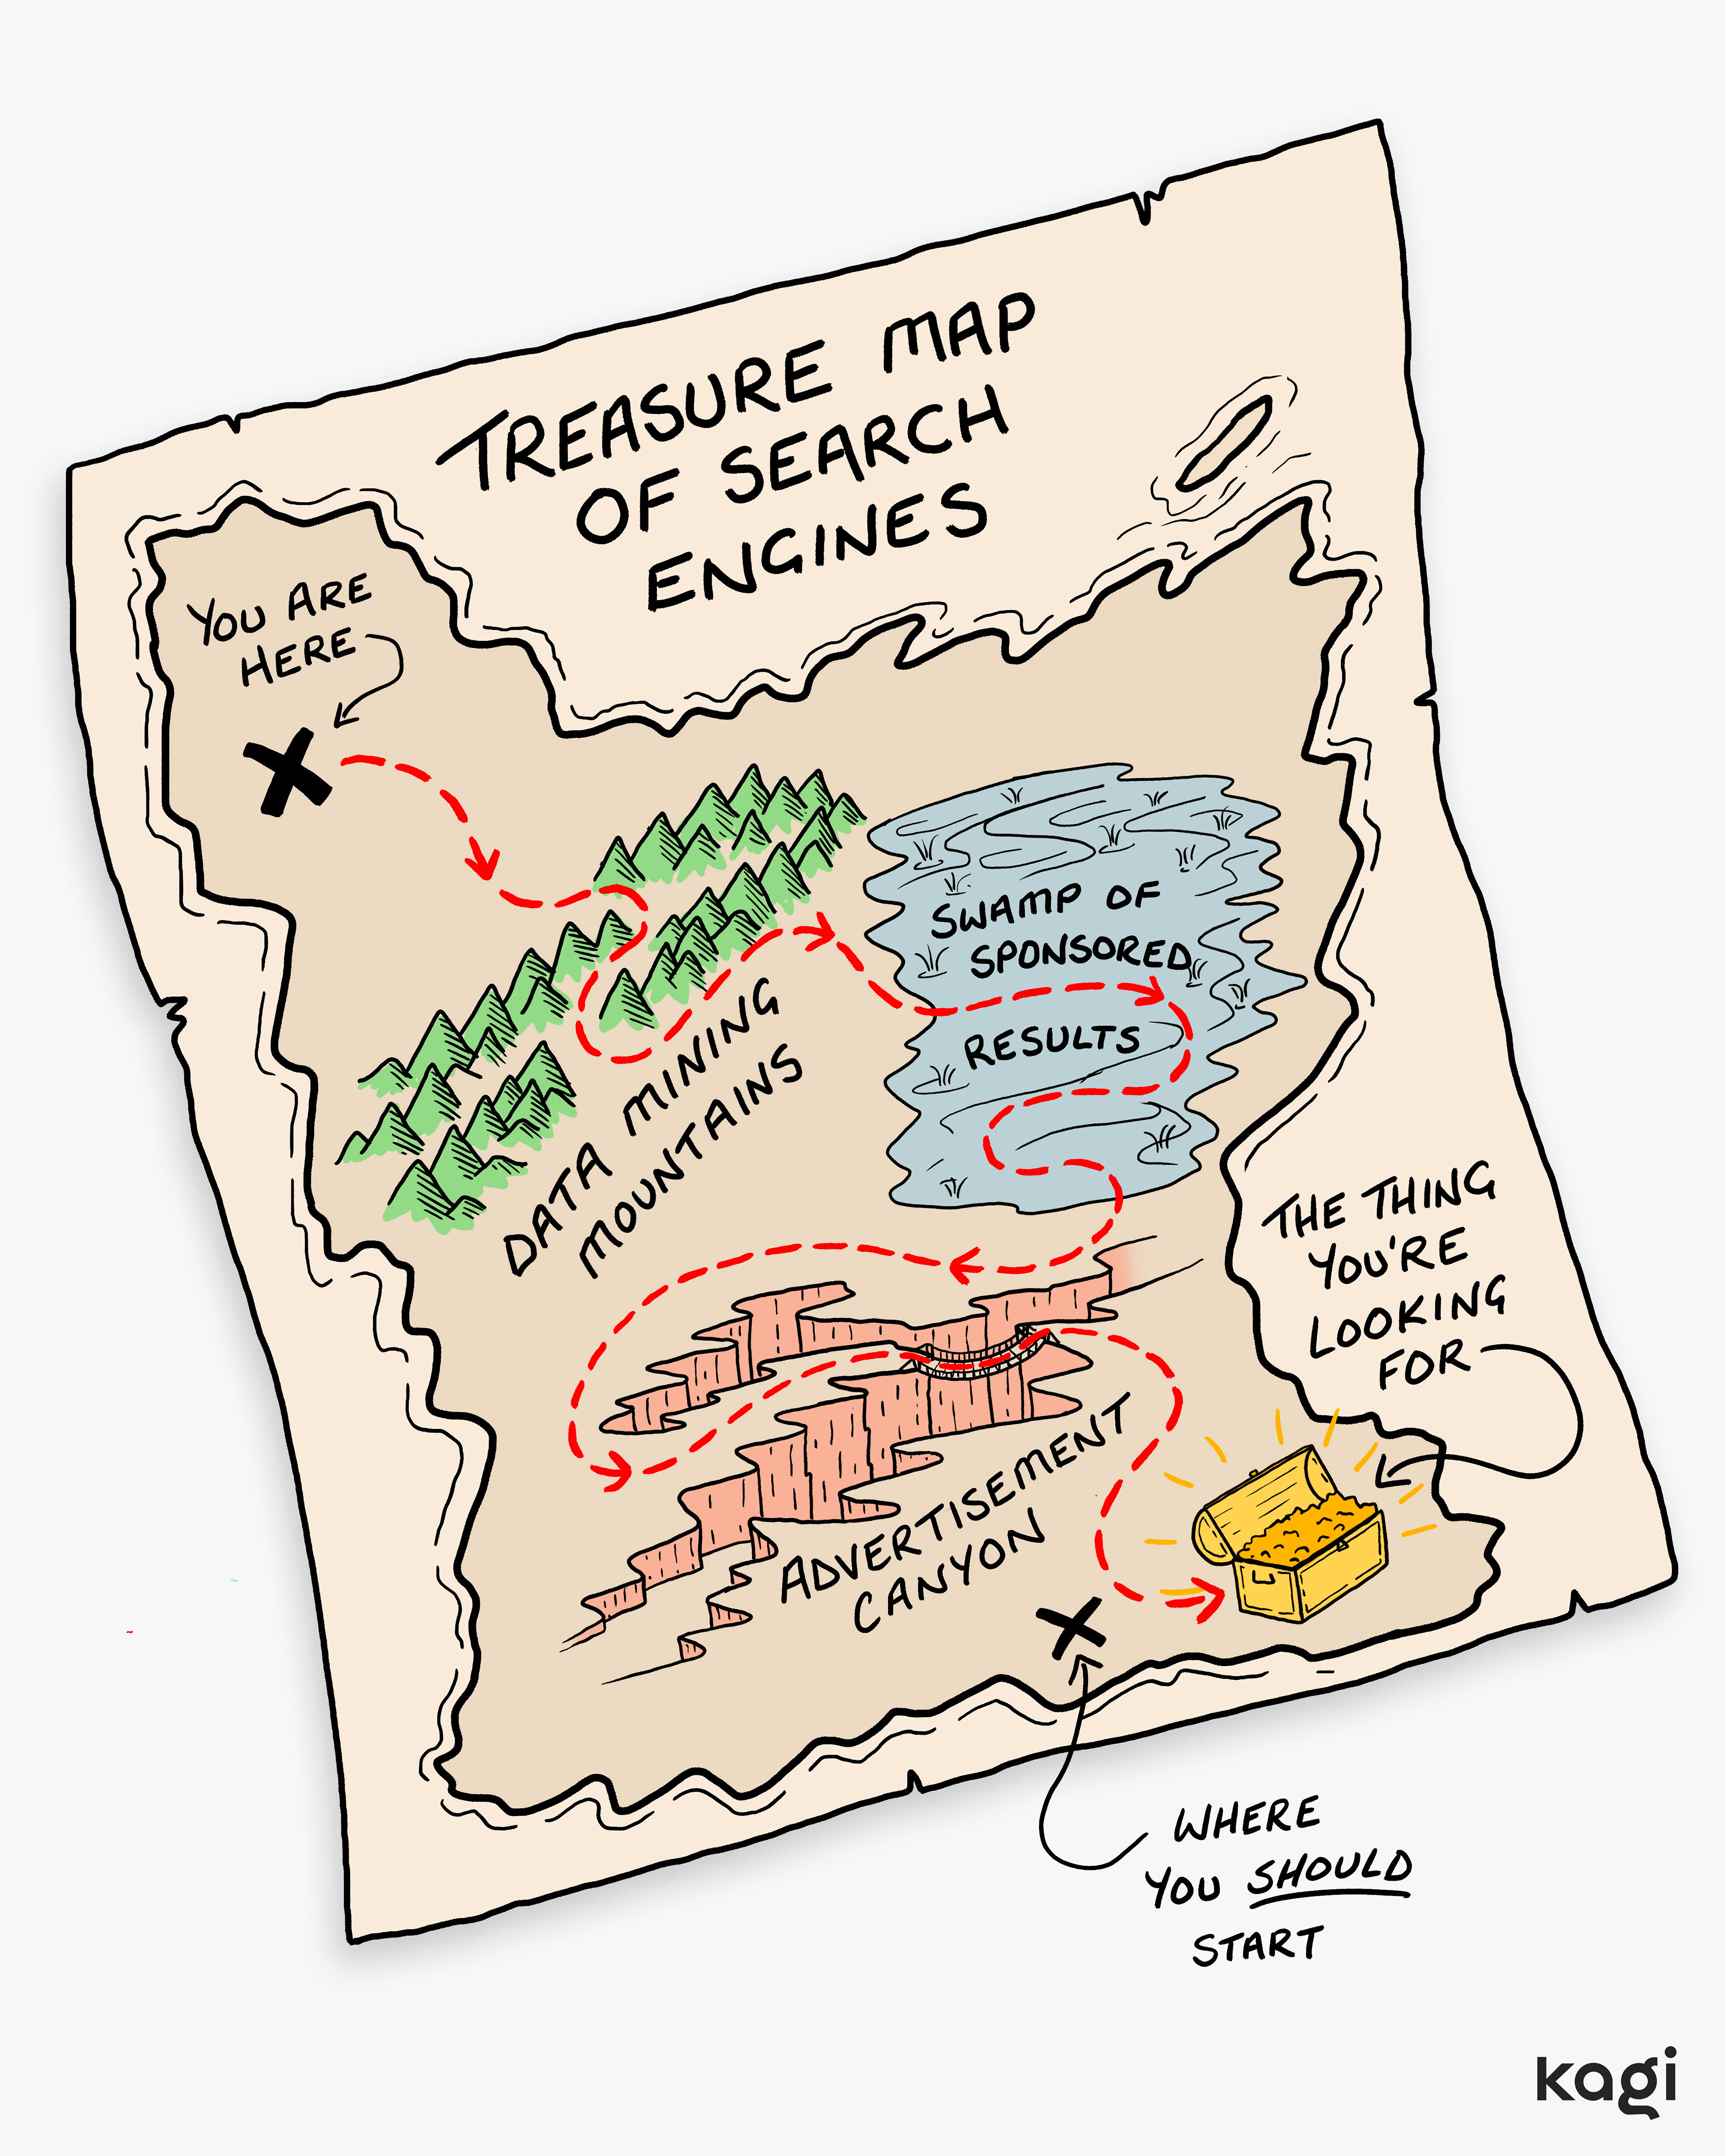 TREASURE MAP
OF SEARCH
ENGINES
YOU ARE
HERE
SWAMP OF
SPONSORED
RESULTS
DATA MINING
MOUNTAINS
THE THING
YOU'RE
LOOKING
FOR
ADVERTISEMENT
CANYON
WHERE
YOU SHOULD
START
kagi